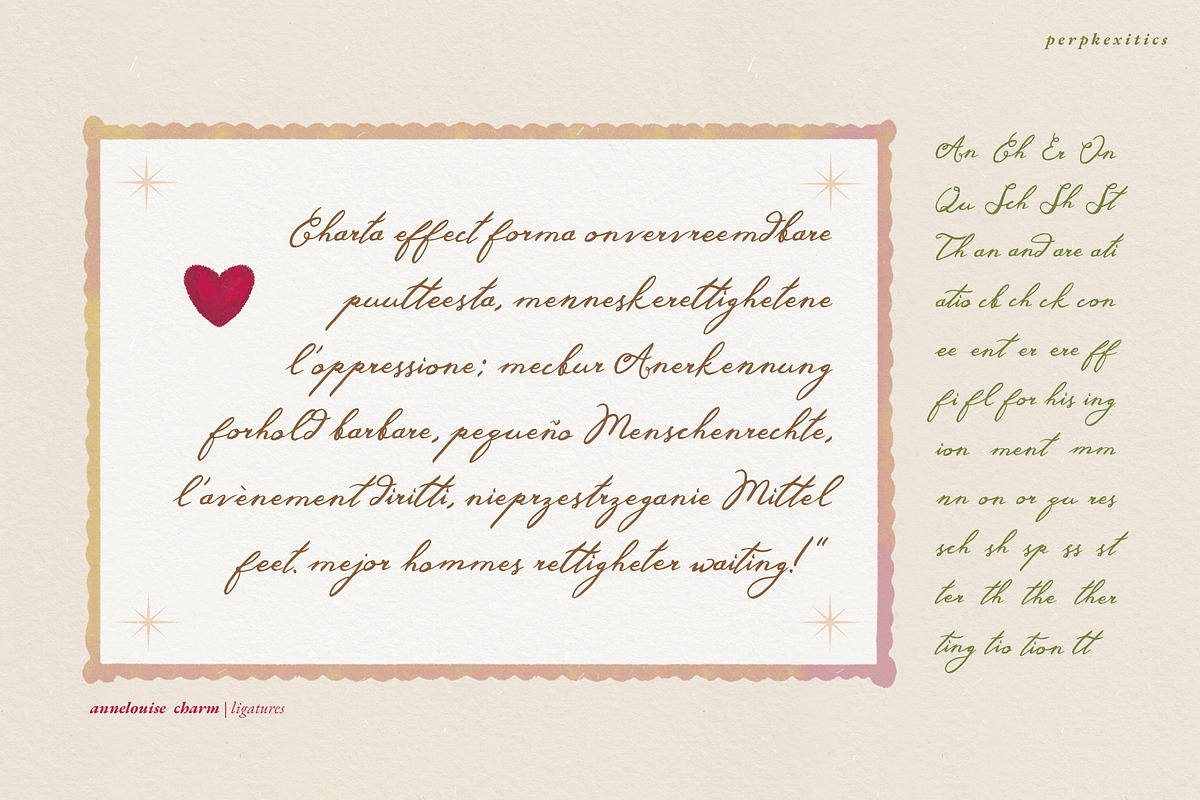 perpkexitics
Charta effect forma onvervreemdbare
puutteesta, menneskerettighetene
l'oppressione; mecbur Anerkennung
forhold barbare, pequeño Menschenrechte,
l'avènement diritti, nieprzestrzeganie Mittel
feet. mejor hommes rettigheter waiting!"
An Ch Er On
Qu Sch Sh St
Th an and are ati
atio cb ch ck con
ee ent er ere ff
fi fl for his ing
ion ment mm
nn on or qu res
sch sh sp ss st
ter th the ther
ting tio tion tt
annelouise charm | ligatures